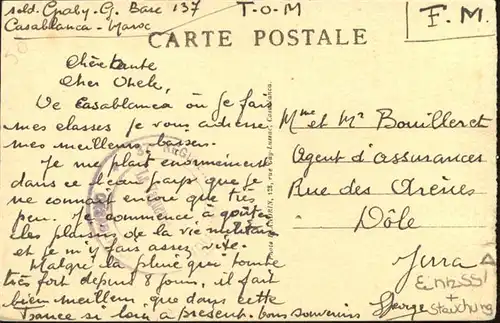 sold. Graby. G. Base 137
Casablanca - Maroc
T.O.M
F.M.
CARTE POSTALE
Chère tante
Cher Oncle,
De Casablanca où je fais
mes classes je vous adresse
mes meilleurs baisers.
Je me plait enormement
dans ce beau pays que je
ne connait encore que très
peu. Je commence à goûter
les plaisirs de la vie militaire
et je m'y fais assez vite.
Malgré la pluie qui tombe
très fort depuis 8 jours, il fait
bien meilleur que dans cette
France si loin à présent. bons souvenirs
George
Mme et Mr Bouilleret
Agent d'assurances
Rue des Arènes
Dôle
Jura